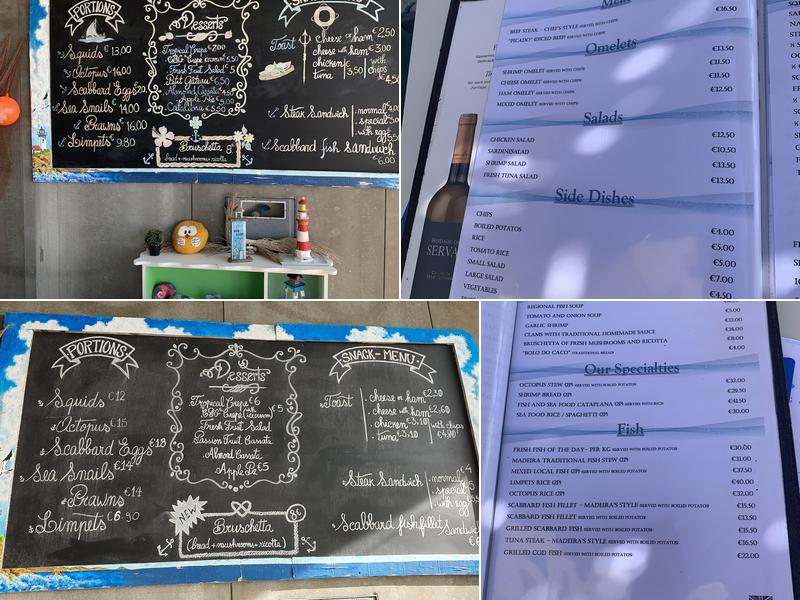 PORTIONS
Squids € 13,00
Octopus € 16,00
Scabbard Eggs
Sea Snails 14,00
Prawns € 16,00
Limpets € 9.80
Desserts
Tropical Crepe
Fresh Fruit Salad
Petit Gâteau
Almond Cassata
Apple Pie
Bruschetta 8€
(bread+mushrooms+ricotta)
Toast
cheese or ham €2,50
cheese with ham € 3,00
chicken
tuna 3,50
with chips
Steak Sandwich
normal
special
with egg
Scabbard fish sandwich
€6,00
€16.50
BEEF STEAK - CHEF'S STYLE SERVED WITH CHIPS
"PICADO" (DICED BEEF) SERVED WITH CHIPS
Omelets
SHRIMP OMELET SERVED WITH CHIPS €13.50
CHEESE OMELET SERVED WITH CHIPS €11.50
HAM OMELET SERVED WITH CHIPS €11.50
MIXED OMELET SERVED WITH CHIPS €12.50
Salads
CHICKEN SALAD €12.50
SARDINE SALAD €10.50
SHRIMP SALAD €13.50
FRESH TUNA SALAD €13.50
Side Dishes
CHIPS €4.00
BOILED POTATOS €5.00
RICE €5.00
TOMATO RICE €7.00
SMALL SALAD €4.50
LARGE SALAD
VEGETABLES
PORTIONS
Squids €12
Octopus €15
Scabbard Eggs €18
Sea Snails €14
Prawns €14
Limpets € 8.90
Desserts
Tropical Crepe € 6
Fresh Fruit Salad
Passion Fruit Cassata
Almond Cassata
Apple Pie € 5
NEW
Bruschetta
(bread+mushrooms+ricotta)
SNACK-MENU
Toast
cheese or ham €2,30
cheese with ham €2,60
chicken €3,10
tuna €3,10
with chips
Steak Sandwich
normal
special
with egg
Scabbard fish fillet Sandwich
REGIONAL FISH SOUP €5.00
TOMATO AND ONION SOUP
GARLIC SHRIMP €12.00
CLAMS WITH TRADITIONAL HOMEMADE SAUCE €16.00
BRUSCHETTA OF FRESH MUSHROOMS AND RICOTTA €8.00
"BOLO DO CACO" (TRADITIONAL BREAD) €4.00
Our Specialties
OCTOPUS STEW (2P) SERVED WITH BOILED POTATOS €32.00
SHRIMP BREAD (2P) €29.50
FISH AND SEA FOOD CATAPLANA (2P) SERVED WITH RICE €41.50
SEA FOOD RICE / SPAGHETTI (2P) €30.00
Fish
FRISH FISH OF THE DAY- PER KG SERVED WITH BOILED POTATOS €30.00
MADEIRA TRADITIONAL FISH STEW (2P) €31.00
MIXED LOCAL FISH (2P) SERVED WITH BOILED POTATOS €37.50
LIMPETS RICE (2P) €40.00
OCTOPUS RICE (2P) €32.00
SCABBARD FISH FILLET - MADEIRA'S STYLE SERVED WITH BOILED POTATOS €15.50
SCABBARD FISH FILLET SERVED WITH BOILED POTATOS €13.50
GRILLED SCABBARD FISH SERVED WITH BOILED POTATOS €15.50
TUNA STEAK - MADEIRA'S STYLE SERVED WITH BOILED POTATOS €16.50
GRILLED COD FISH SERVED WITH BOILED POTATOS €22.00